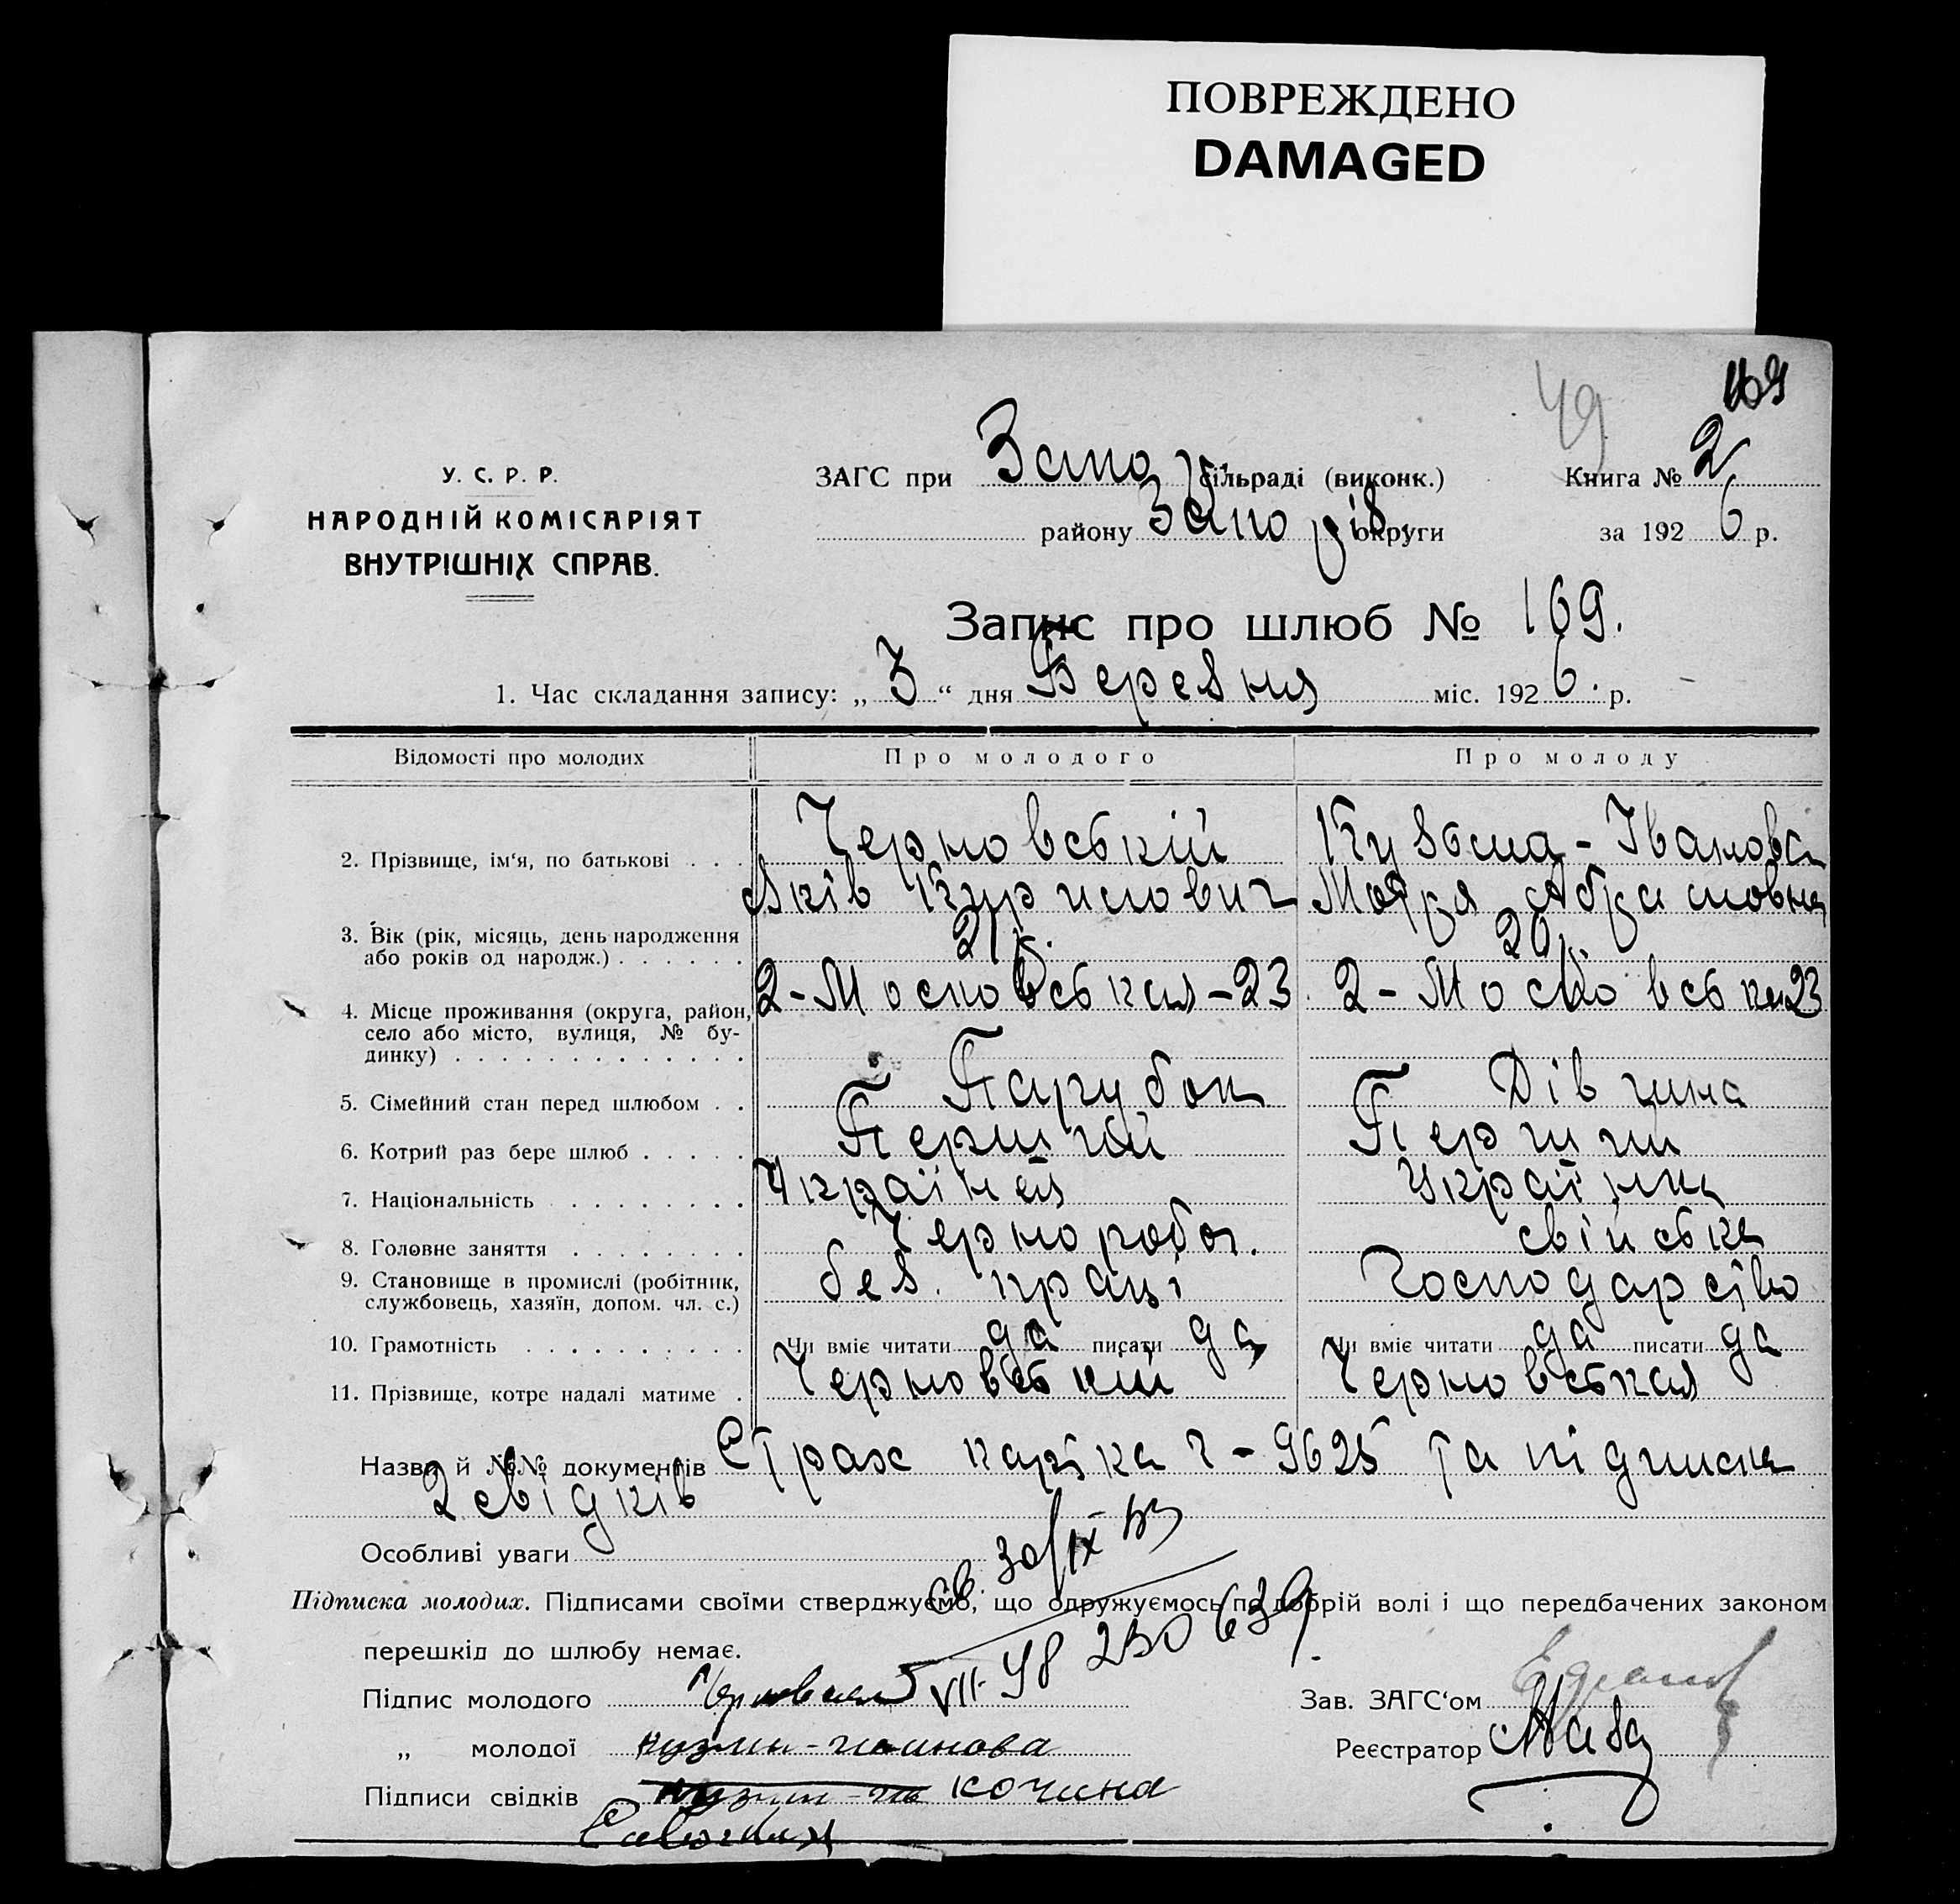 ПОВРЕЖДЕНО
DAMAGED
49
169
У. С. Р. Р.
НАРОДНІЙ КОМІСАРІЯТ
ВНУТРІШНІХ СПРАВ.
ЗАГС при Запор сільраді (виконк.)
Книга № 2
району Запорів округи
за 192 6 р.
Запис про шлюб № 169.
1. Час складання запису: „ 3 “ дня Березня міс. 192 6. р.
Відомості про молодих
Про молодого
Про молоду
2. Прізвище, ім‘я, по батькові . . .
Черновський
Яків Кирилович
Кузьма-Іванова
Мотря Абрамовна
3. Вік (рік, місяць, день народження
або років од народж.) . . . . . .
21 р.
20 р.
4. Місце проживання (округа, район,
село або місто, вулиця, № бу-
динку) . . . . . . . . . . . . .
2-Московськая-23
2-Московська 23
5. Сімейний стан перед шлюбом . .
Парубок
Дівчина
6. Котрий раз бере шлюб . . . . .
Перший
Перший
7. Національність . . . . . . . .
Україн
Українка
8. Головне заняття . . . . . . . .
Чернороб.
свійське
9. Становище в промислі (робітник,
службовець, хазяїн, допом. чл. с.)
без. праці
Господарство
10. Грамотність . . . . . . . . . .
Чи вміє читати да писати да
Чи вміє читати да писати да
11. Прізвище, котре надалі матиме .
Черновський
Черновськая
Назви й №№ документів Страх картка ч-9625 та підписка
2 свідків
Особливі уваги
св. 30/IX
Підписка молодих. Підписами своїми стверджуємо, що одружуємось по добрій волі і що передбачених законом
перешкід до шлюбу немає.
VII-УЯ 230639
Підпис молодого
Зав. ЗАГС‘ом
„ молодої
Реєстратор
Підписи свідків кочина